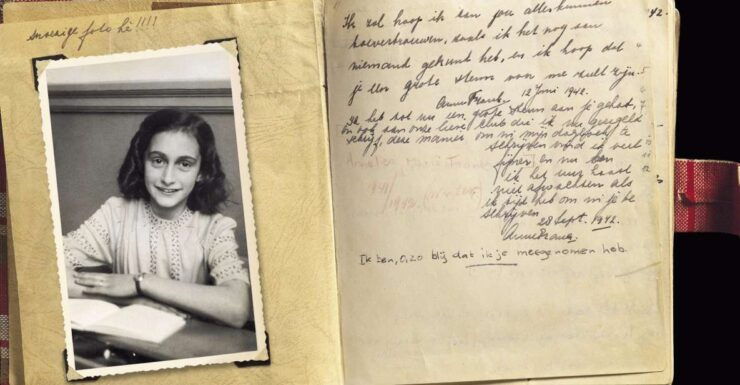 Snoezige foto hè!!!!
42.
Ik zal hoop ik aan jou alles kunnen
toevertrouwen, zoals ik het nog aan
niemand gekund heb, en ik hoop dat
je een grote steun voor me zult zijn.
Anne Frank. 12 Juni 1942.
Ik heb tot nu toe een grote steun aan je gehad,
en ook aan onze lieve club die ik nu geregeld
schrijf, deze manier om in mijn dagboek te
schrijven vind ik veel
fijner en nu kan
ik het uur haast
niet afwachten als
ik tijd heb om in je te
schrijven
28 Sept. 1942.
Anne Frank.
Ik ben, O, zo blij dat ik je meegenomen heb.